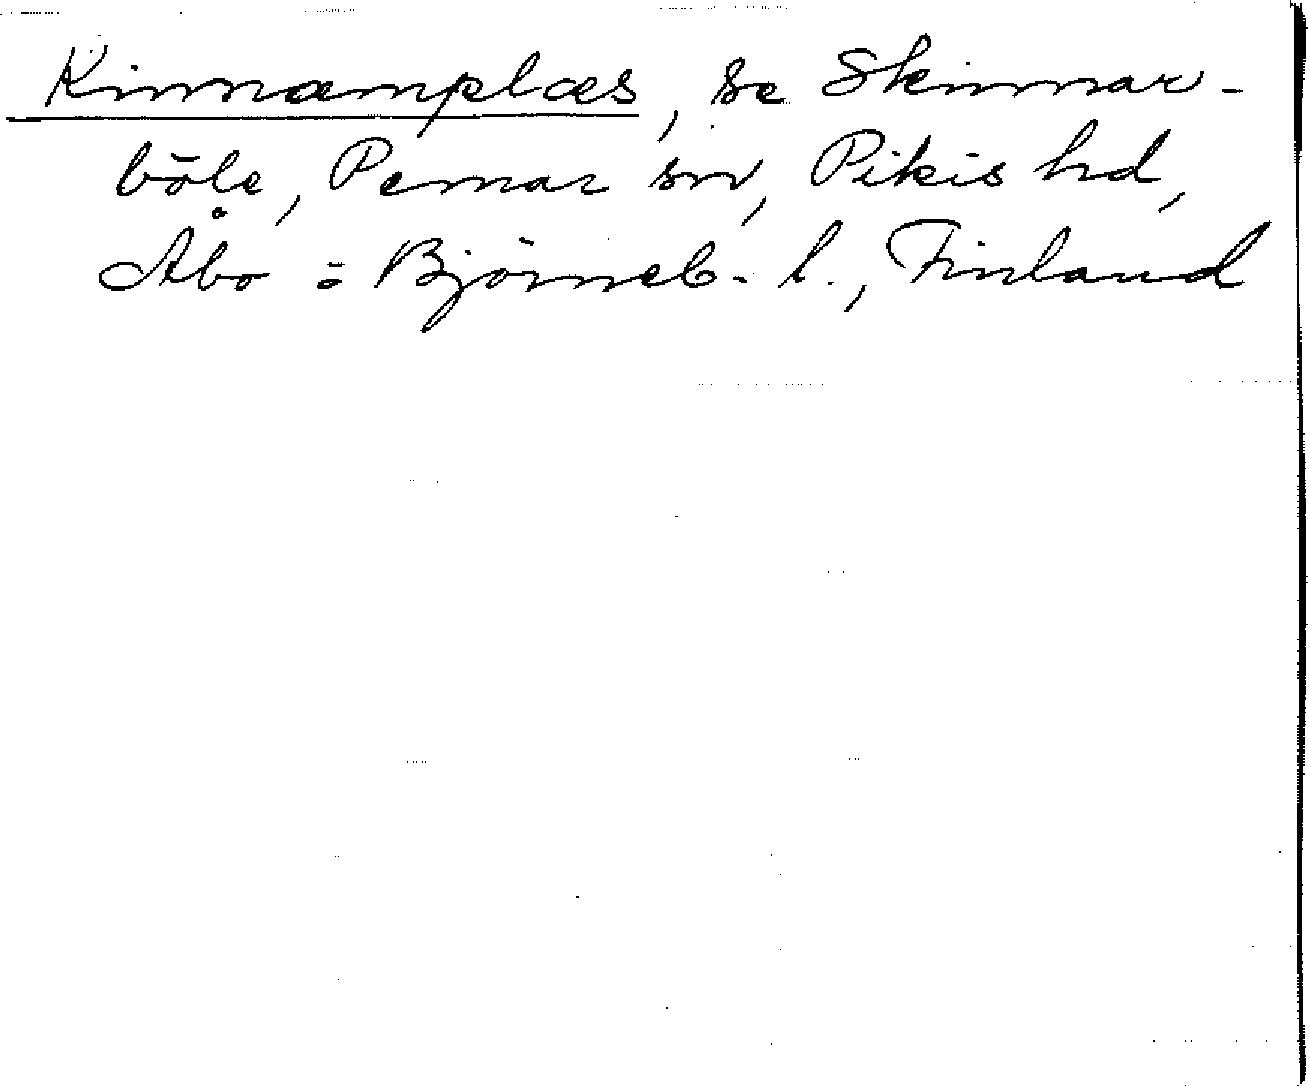 Kinnæmplæs, se Skinnar-
böle, Pemar sn, Pikis hd,
Åbo o Björneb. l., Finland